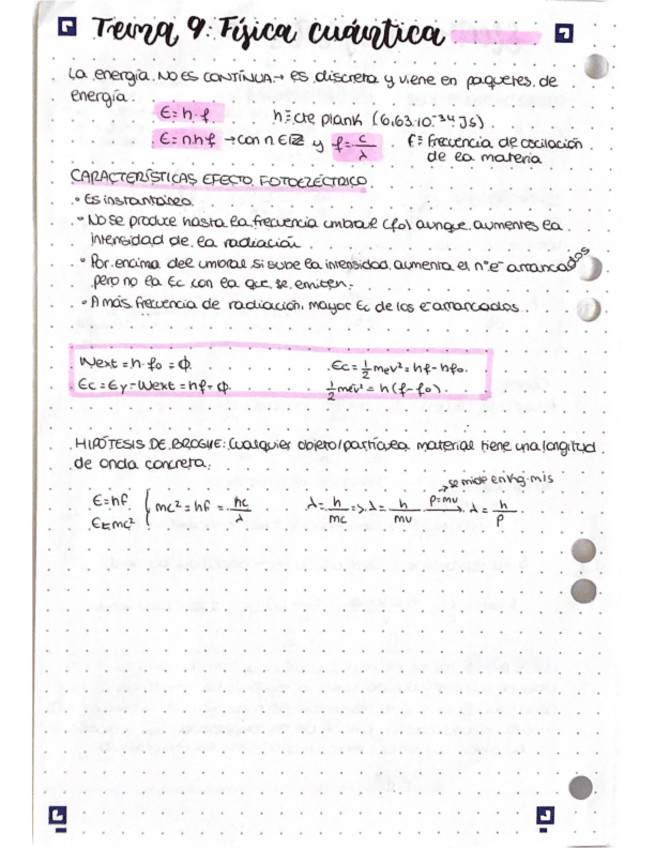 Tema 9: Física cuántica
La energía NO ES CONTÍNUA → es discreta y viene en paquetes de
energía.
E = h · f    h ≡ cte plank (6,63·10⁻³⁴ Js).
E = n h f → con n ∈ ℤ y f = c/λ    f ≡ frecuencia de oscilación
de la materia
CARACTERÍSTICAS EFECTO FOTOELÉCTRICO
• Es instantáneo.
• No se produce hasta la frecuencia umbral (f₀) aunque aumentes la
intensidad de la radiación.
• Por encima del umbral si sube la intensidad, aumenta el nº e⁻ arrancados
pero no la Ec con la que se emiten.
• A más frecuencia de radiación, mayor Ec de los e⁻ arrancados.
Wext = h · f₀ = Φ.    Ec = 1/2 mev² = hf - hf₀.
Ec = Eγ - Wext = hf - Φ.    1/2 mev² = h (f - f₀).
HIPÓTESIS DE BROGLIE: Cualquier objeto/partícula material tiene una longitud
de onda concreta.
→ se mide en kg·m/s
E = hf
E = mc² { mc² = hf = hc/λ    λ = h/mc => λ = h/mv —p=mv→ λ = h/p